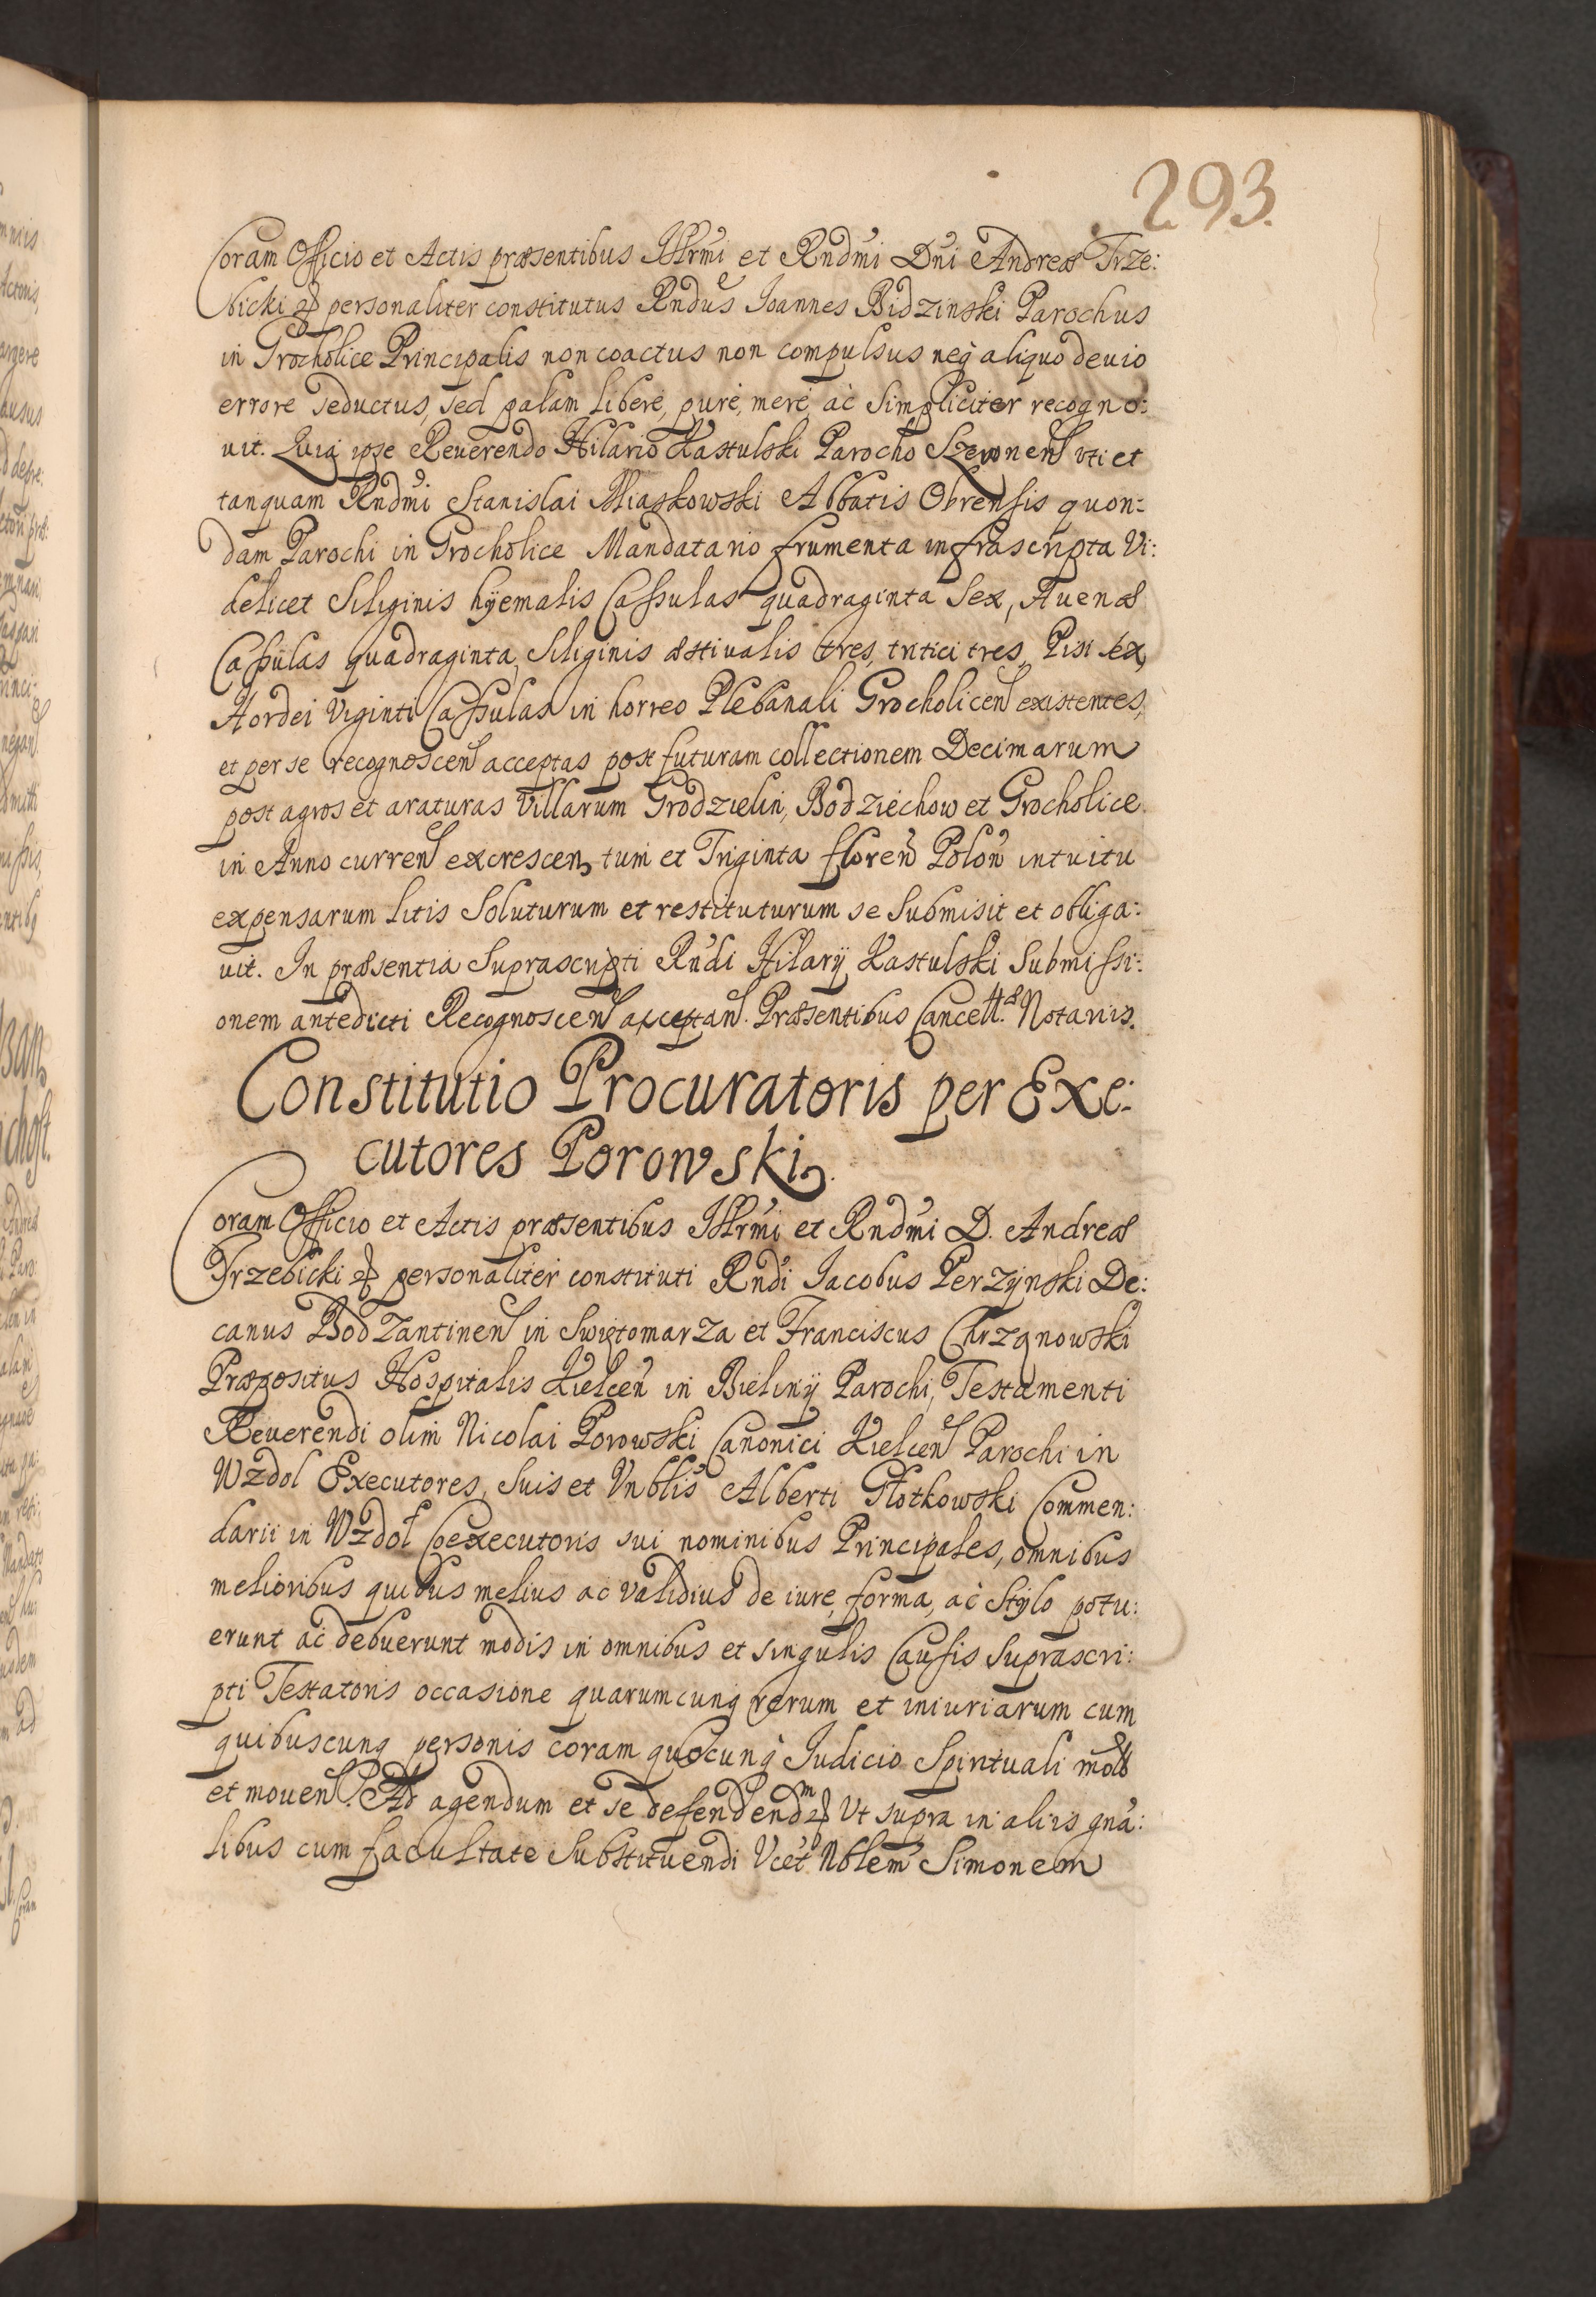 293.
Coram Officio et Actis præsentibus Illrmi et Rndmi Dni Andreæ Trze:
bicki personaliter constitutus Rndus Ioannes Bidzinski Parochus
in Grocholice Principalis non coactus non compulsus neq aliquo deuio
errore seductus, sed palam libere, pure, mere, ac simpliciter recogno:
uit. Quia ipse Reuerendo Hilario Kastulski Parocho Szewnen uti et
tanquam Rndmi Stanislai Miaskowski Abbatis Obrensis quon:
dam Parochi in Grocholice Mandatario frumenta infrascripta Vi:
delicet Siliginis hÿemalis Cassulas quadraginta Sex, Auenæ
Cassulas quadraginta, Siliginis æstiualis tres, tritici tres, Pisi sex,
Hordei Viginti Cassulas in horreo Plebanali Grocholicen existentes,
et per se recognoscen acceptas post futuram collectionem Decimarum
post agros et araturas Villarum Grodzielin, Bodziechow et Grocholice
in Anno curren excrescen tum et Triginta floren Polon intuitu
expensarum litis Soluturum et restituturum se Submisit et obliga:
uit. In præsentia Suprascripti Rndi Hilarÿ Kastulski Submissi:
onem antedicti Recognoscen acceptan. Præsentibus Cancellæ Notariis.
Constitutio Procuratoris per Exe:
cutores Porowski.
Coram Officio et Actis præsentibus Illrmi et Rndmi D. Andreæ
Trzebicki personaliter constituti Rndi Iacobus Perzÿnski De:
canus Bodzantinen in Swiętomarza et Franciscus Chrząnowski
Præpositus Hospitalis Kielcen in Bielinÿ Parochi, Testamenti
Reuerendi olim Nicolai Porowski Canonici Kielcen Parochi in
Wzdol Executores, Suis et Vnblis Alberti Głotkowski Commen:
darii in Wzdol Coexecutoris sui nominibus Principales, omnibus
melioribus quibus melius ac validius de iure, forma, ac Stÿlo potu:
erunt ac debuerunt modis in omnibus et singulis Causis Suprascri:
pti Testatoris occasione quarumcunq rerum et iniuriarum cum
quibuscunq personis coram quocunq Iudicio Spirituali
et mouen. Ad agendum et se defendendm Vt supra in aliis gna:
libus cum facultate Substituendi Vcet Nblem Simonem